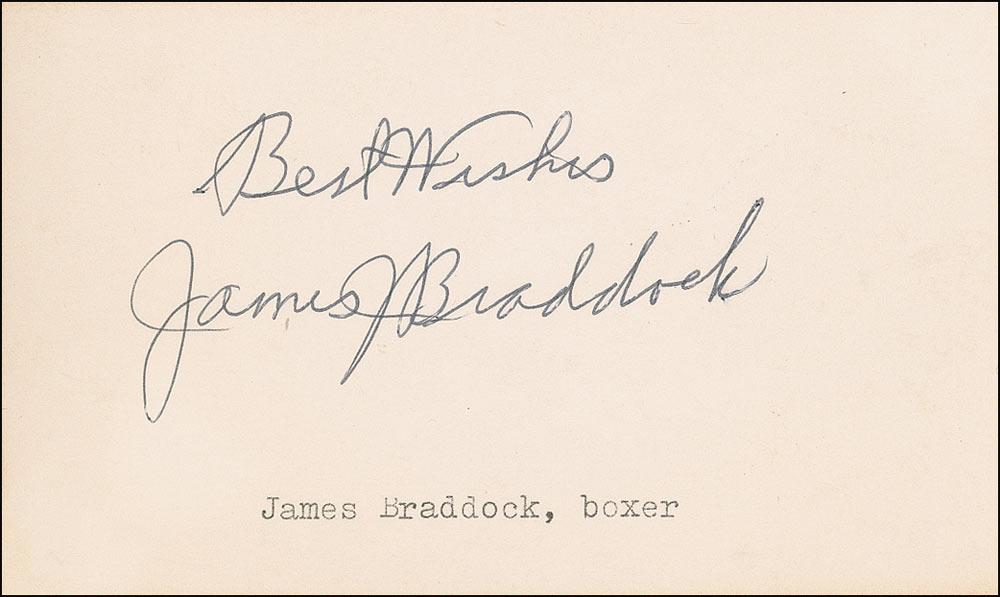 Best Wishes
James J Braddock
James Braddock, boxer